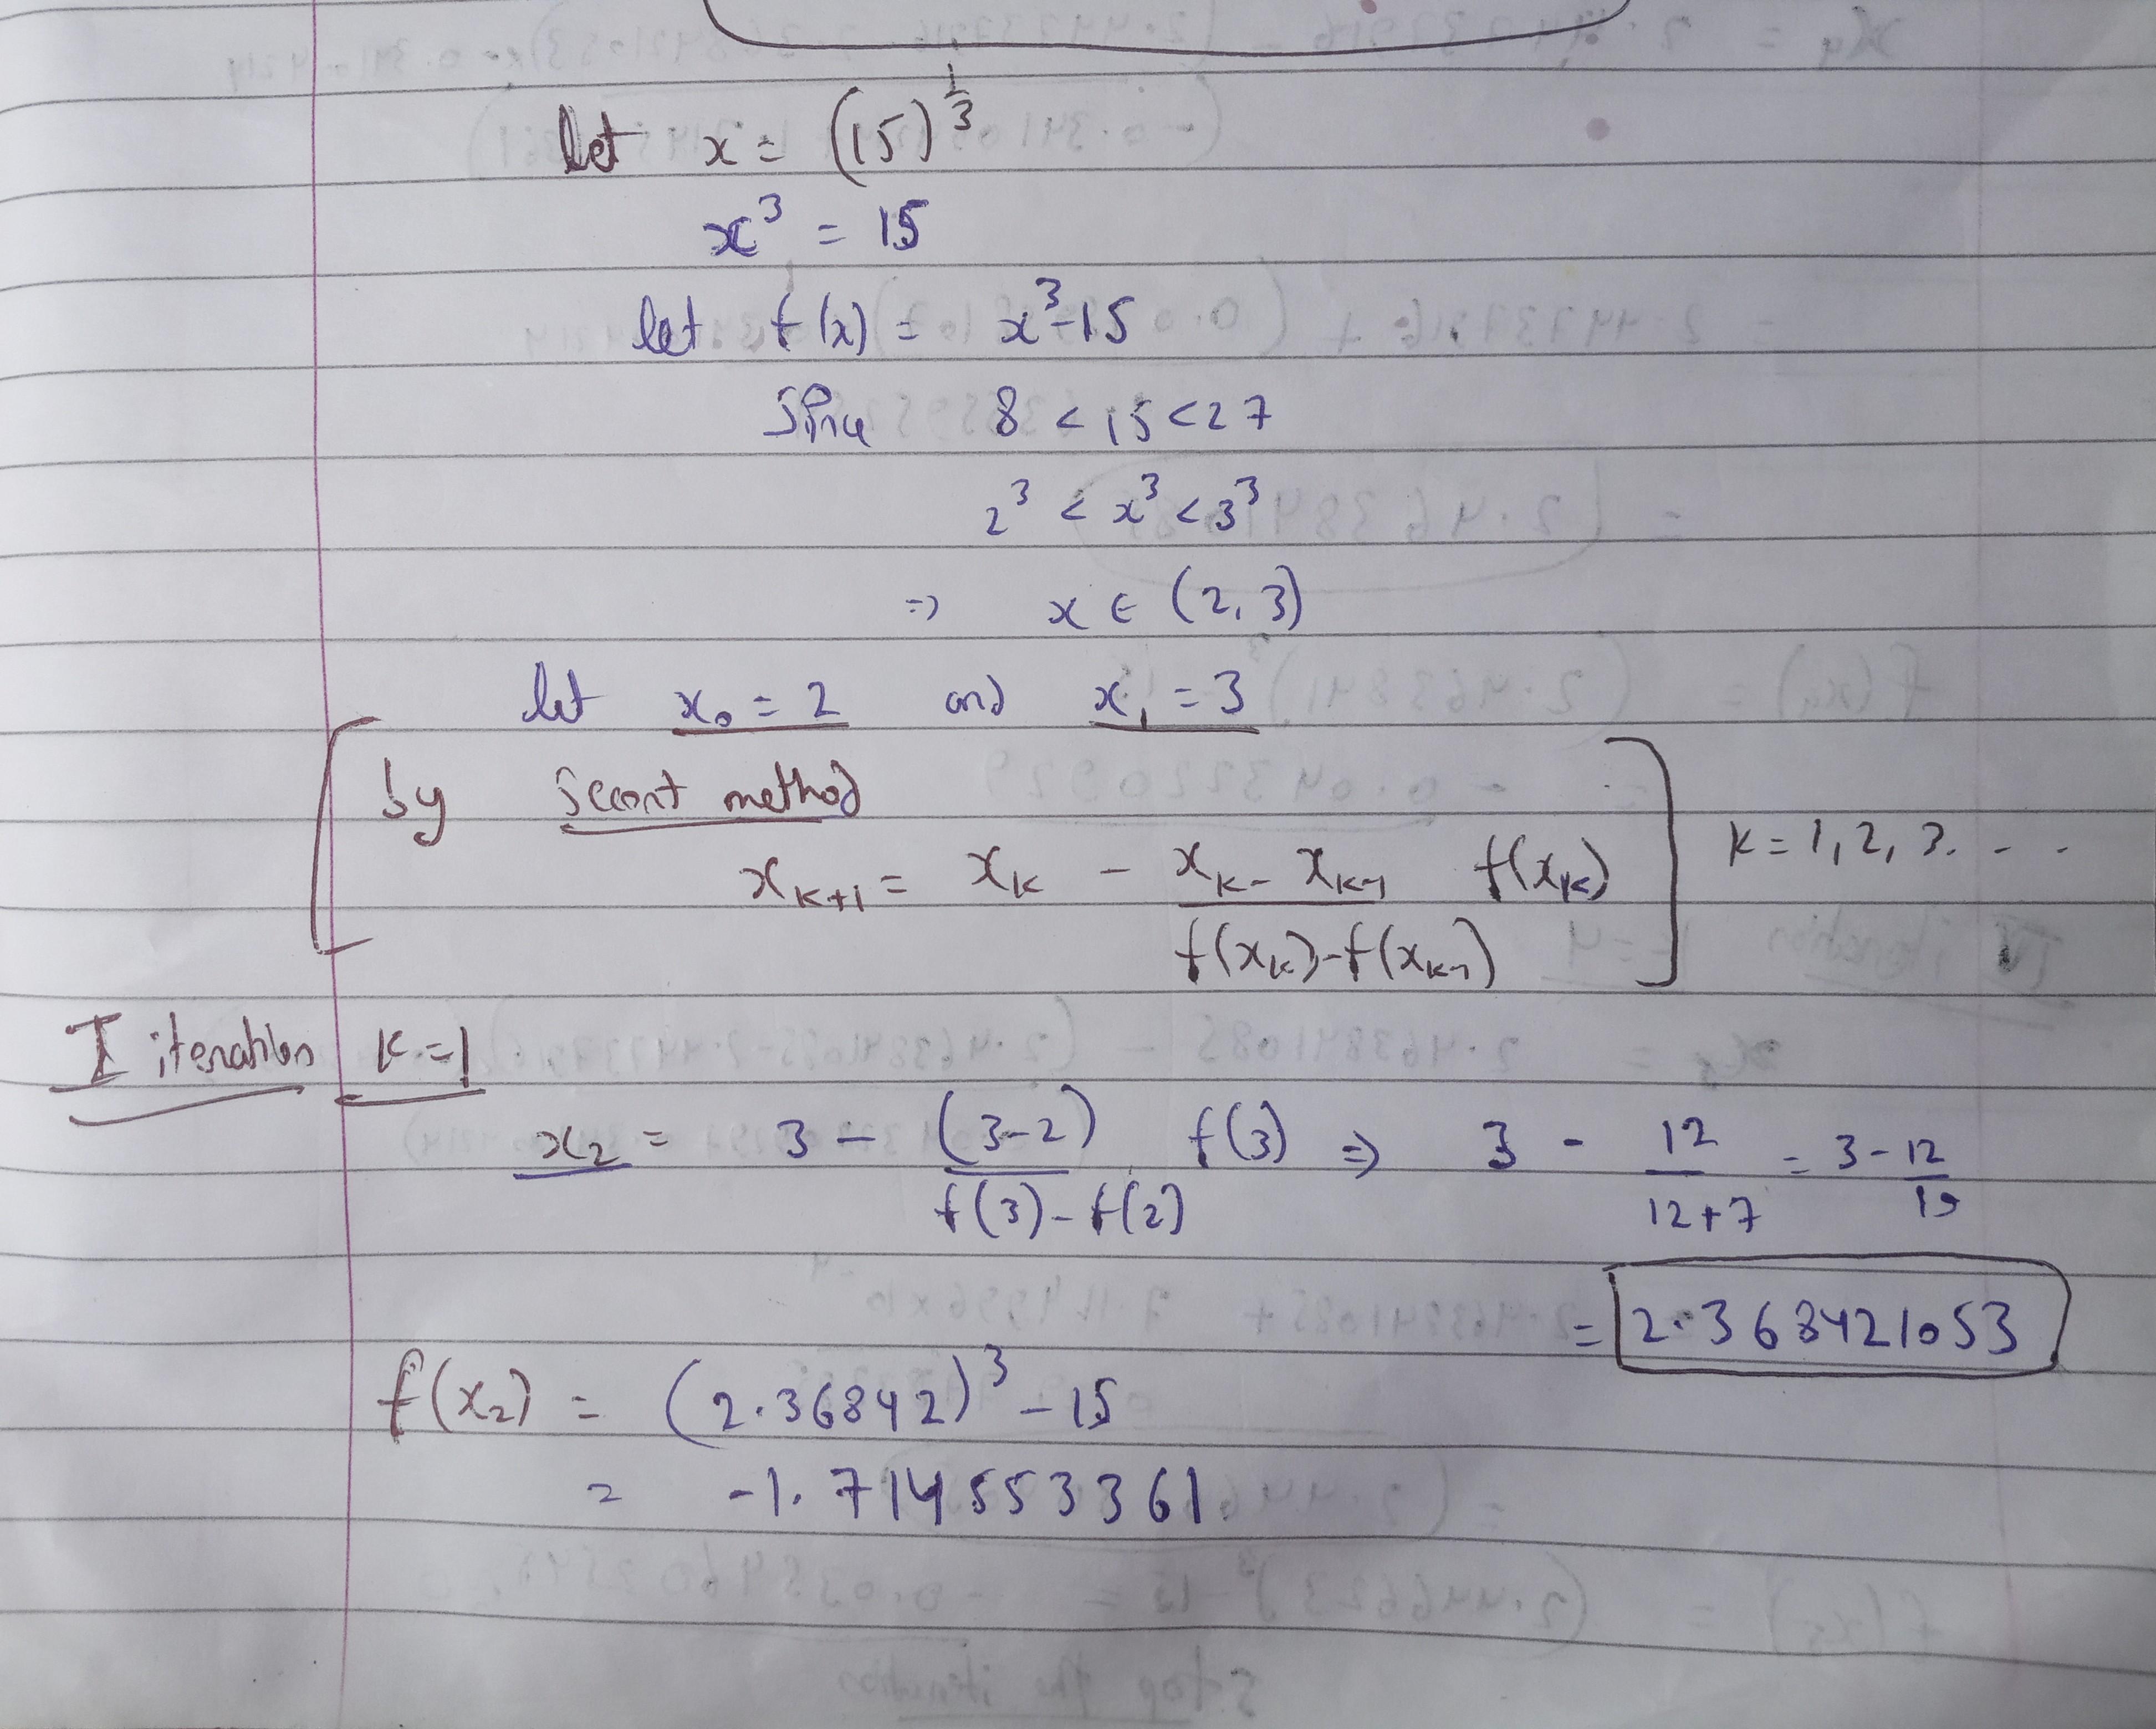 let x = (15)^(1/3)
x³ = 15
let f(x) = x³-15
Since 8 < 15 < 27
2³ < x³ < 3³
=> x ∈ (2, 3)
let x₀ = 2 and x₁ = 3
by Secant method
x_{K+1} = x_K - (x_K - x_{K-1}) / (f(x_K) - f(x_{K-1})) f(x_K) K = 1, 2, 3. . .
I iteration K=1
x₂ = 3 - (3-2) / (f(3) - f(2)) f(3) => 3 - 12 / (12+7) = 3 - 12/19
= 2.368421053
f(x₂) = (2.36842)³ - 15
= -1.714553361